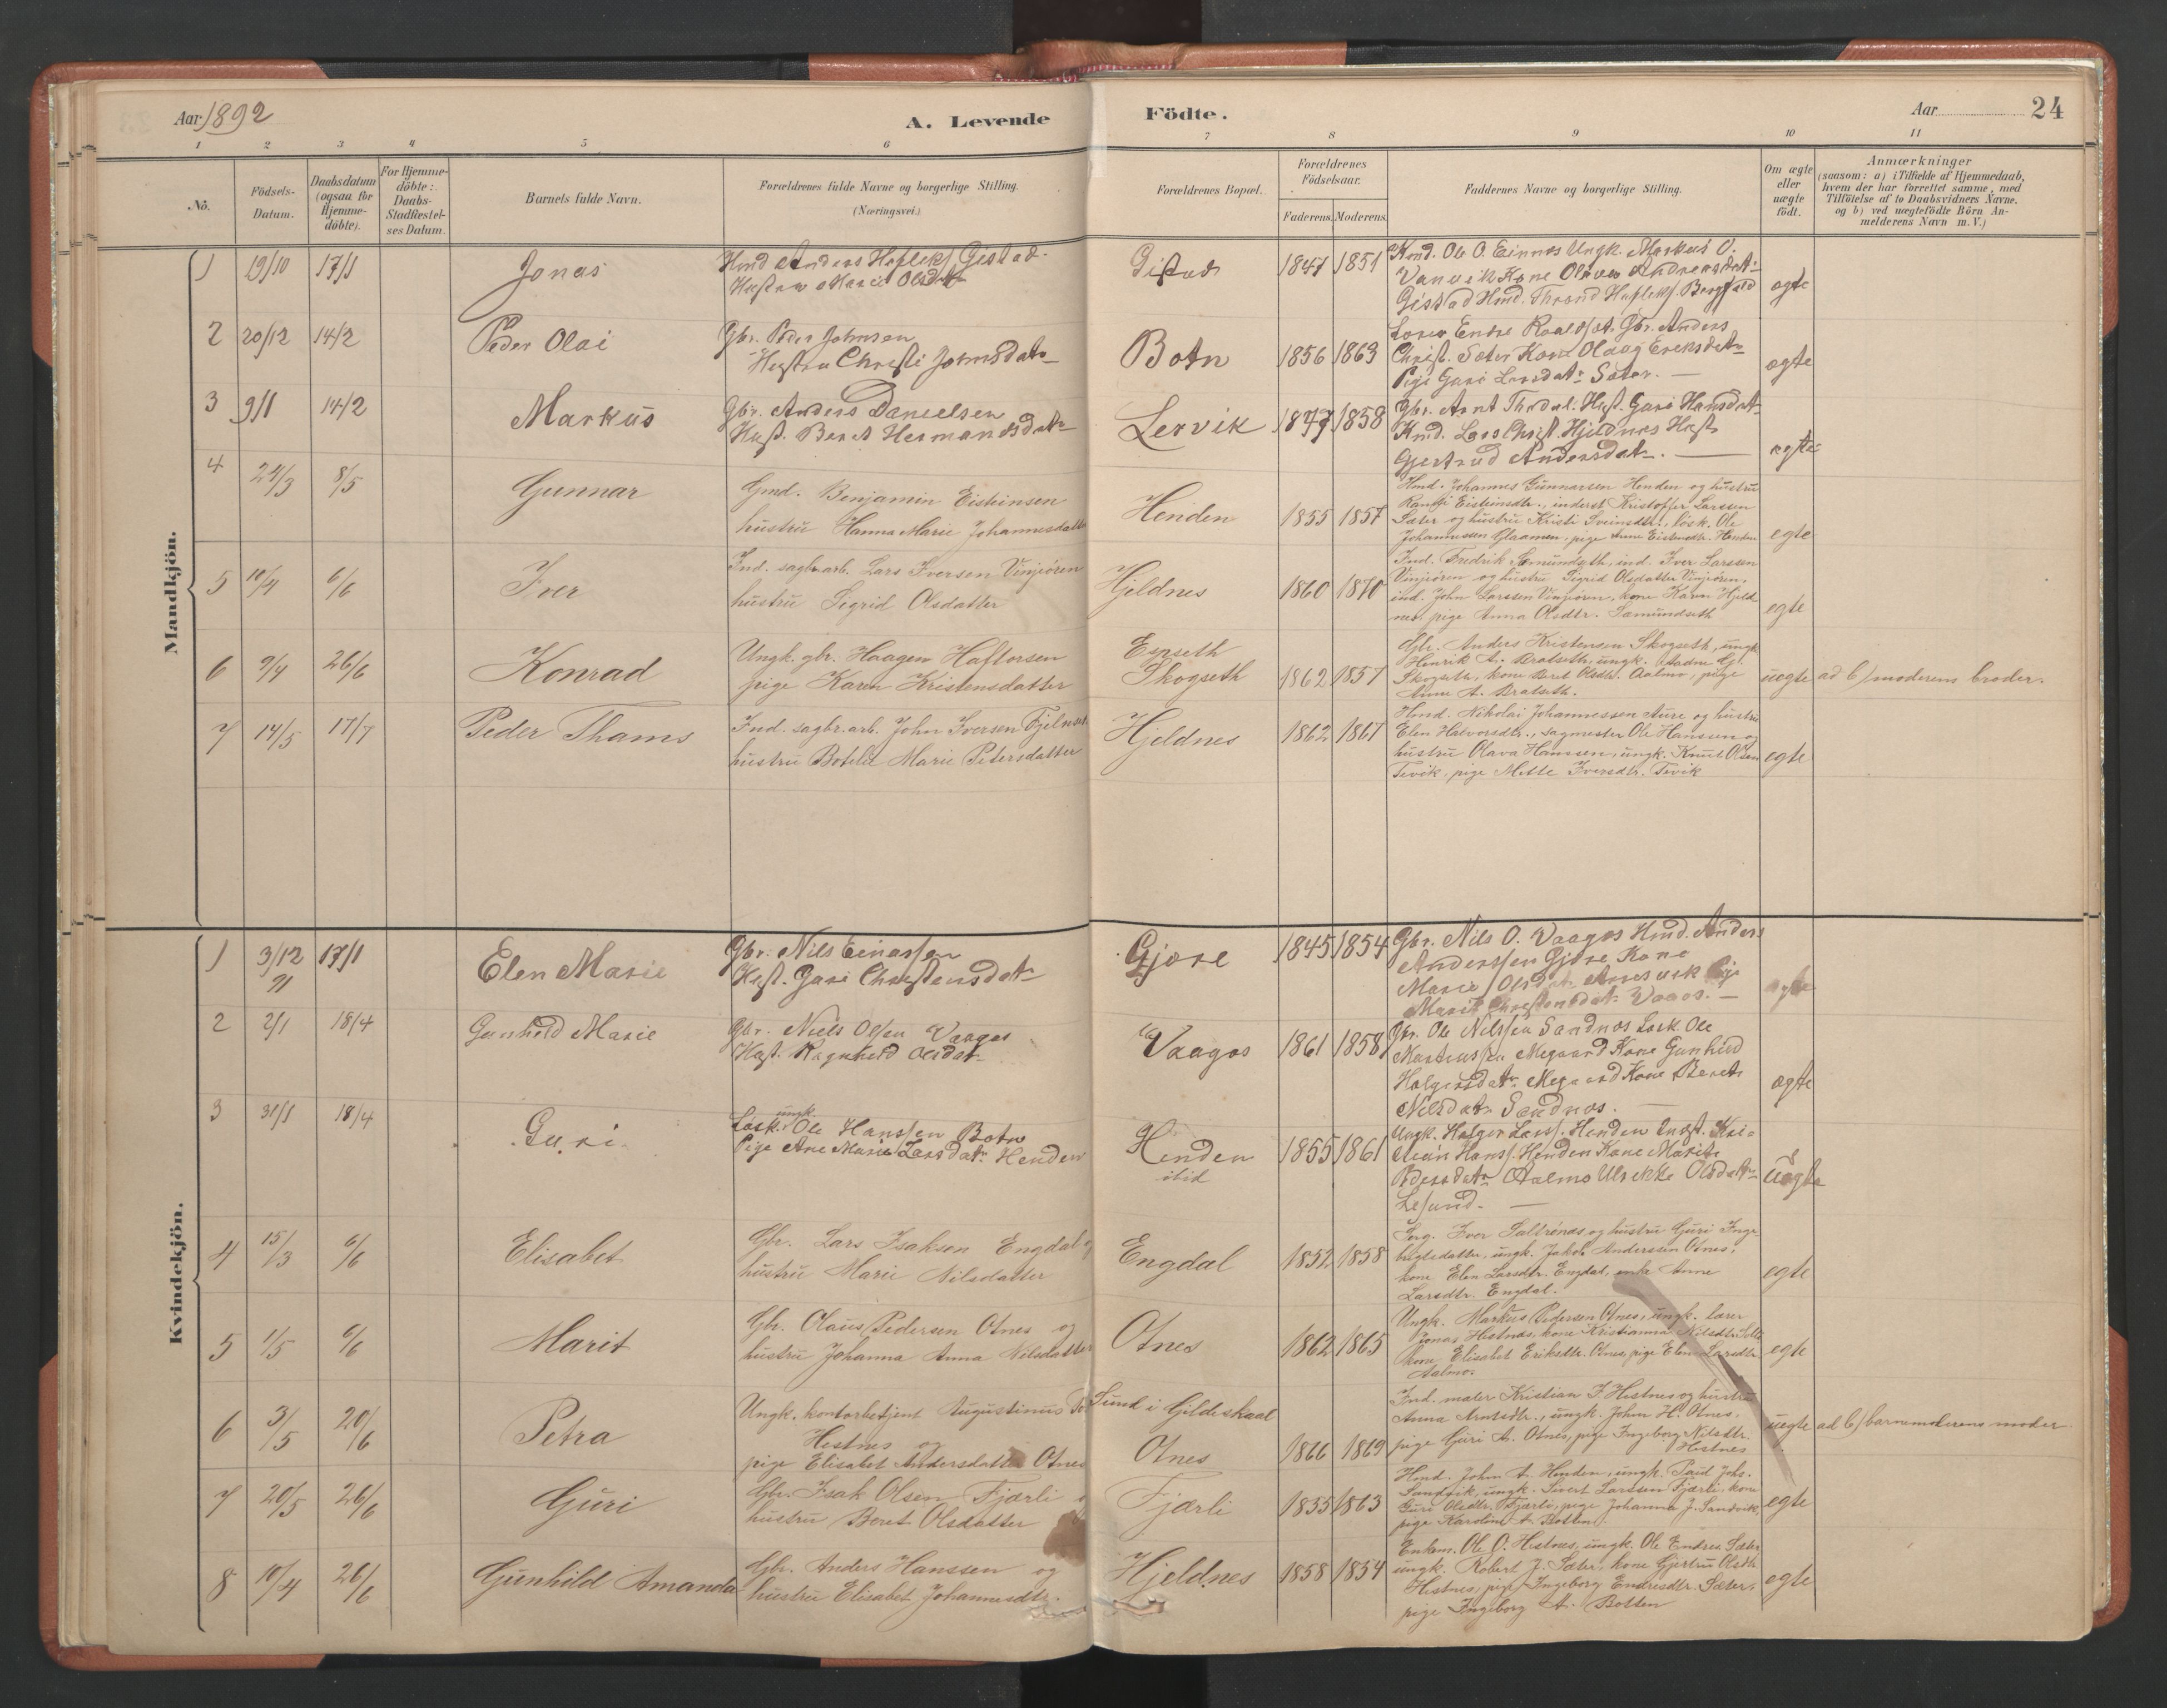 Aar 1892
A. Levende Födte.
Aar 24
1 2 3 4 5 6 7 8 9 10 11
No.
Födsels-Datum.
Daabsdatum (ogsaa for Hjemme-döbte).
For Hjemme-döbte: Daabs-Stadfæstel-ses Datum.
Barnets fulde Navn.
Forældrenes fulde Navne og borgerlige Stilling.
(Næringsvei.)
Forældrenes Bopæl.
Forældrenes Födselsaar.
Faderens. Moderens.
Faddernes Navne og borgerlige Stilling.
Om ægte eller uægte födt.
Anmærkninger
(saasom: a) i Tilfælde af Hjemmedaab,
hvem der har forrettet samme, med
Tilföielse af to Daabsvidners Navne,
og b) ved uægtefödte Börn An-
melderens Navn m. V.)
Mandkjön.
1 19/10 17/1 Jonas
Hmd Anders Hafleks. Gistad.
Hustru Marit Olsdtr
Gistad 1847 1851
Kmd. Ole O. Einnes Ungk. Markus O.
Vanvik Kone Andreasdatr
Gistad Hmd. Thrond Hafleks. Bergfald
ægte
2 20/12 14/2 Peder Olai
Gbr. Peder Johnsen
Hustru Christi Johnsdatr
Botn 1856 1863
Endre Gbr. Anders
Christ. Sæter Kone Olaug Eriksdatr
Pige Guri Larsdatr Sæter.
ægte
3 9/1 14/2 Markus
Gbr. Anders Danielsen
Hust. Beret Hermandsdatr
Lervik 1847 1858
Gbr. Arnt Hust. Guri Hansdatr
Kmd. Lars Christ. Hjeldnes Hust.
Gjertrud Andersdatr.
ægte
4 24/3 8/5 Gunnar
Gmd. Benjamin Eisteinsen
hustru Hanna Marie Johannesdatter
Henden 1855 1857
Hmd. Johannes Gunnarsen Henden og hustru
Randi Eisteinsdtr., inderst Kristoffer Larssen
Sæter og hustru Kristi Sveinsdtr., lösk. Ole
Johannessen Glaamen, pige Anne Eisteinsdtr. Henden
egte
5 10/4 6/6 Iver
Ind. sagbr.arb. Lars Iversen Vinjeören
hustru Sigrid Olsdatter
Hjeldnes 1860 1870
Ind. Fredrik Semundseth, ind. Iver Larssen
Vinjeören og hustru Sigrid Olsdatter Vinjeören,
ind. John Larssen Vinjeören, kone Karen Hjeld-
nes, pige Anna Olsdtr. Sæmundseth
egte
6 9/4 26/6 Konrad
Ungk. gbr. Haagen Haftorsen
pige Karen Kristensdatter
Skogseth 1862 1857
Gbr. Anders Kristensen Skogseth, ungk.
Henrik A. Bratseth, ungk.
Skogseth, kone Beret Olsdtr. Aalmo, pige
Anne A. Bratseth.
uegte ad b/ moderens broder.
7 14/5 17/7 Peder Thams
Ind. sagbr.arb. John Iversen
hustru Botelie Marie Petersdatter
Hjeldnes 1862 1867
Hmd. Nikolai Johannessen Aure og hustru
Elen Halvorsdtr., sagmester Ole Hanssen og
hustru Olava Hanssen, ungk. Knut Olsen
Tevik, pige Mette Iversdtr. Tevik
egte
Kvindekjön.
1 3/12 91 17/1 Elen Marie
Gbr. Nils Einarssen
Hust. Guri Christensdatr
Gjöre 1845 1854
Gbr. Nils O. Vaagos Hmd. Anders
Anderssen Gjöre, Kone
Marie Olsdatr Pige
Marit Christensdatr Vaagos.
ægte
2 2/1 18/4 Gunhild Marie
Gbr. Niels Olsen Vaagos
Hust. Ragnhild Olsdatr
Vaagos 1861 1858
Gbr. Ole Nilssen Sandnes Lösk Ole
Megaard Kone Gunhild
Holgersdatr Megaard Kone Beret
Nilsdatr Sandnes.
ægte
3 31/1 18/4 Guri
ungk.
Lösk. Ole Hanssen Botn
Pige Ane Marie Larsdatr Henden
Henden 1855 1861
ibid
Ungk. Holger Larss. Henden Kri-
stian Hanss. Henden Kone Marit
Pedersdatr Aalmo Ulrikke Olsdatr
Lesund.
uægte
4 15/3 6/6 Elisabet
Gbr. Lars Isaksen Engdal og
hustru Marie Nilsdatter
Engdal 1852 1858
Serg. Iver Saltrönes og hustru Guri Inge-
brigtsdatter, ungk. Jakob Anderssen Otnes,
kone Elen Larsdtr. Engdal, enke Anne
Larsdtr. Engdal.
egte
5 1/5 6/6 Marit
Gbr. Olaus Pedersen Otnes og
hustru Johanna Anna Nilsdatter
Otnes 1862 1865
Ungk. Markus Pedersen Otnes, ungk. lærer
Jonas Hestnes, kone Kristianna Nilsdtr.
kone Elisabet Eriksdtr. Otnes, pige Elen Larsdtr.
Aalmo.
egte
6 3/5 20/6 Petra
Ungk. kontorbetjent Augustinus
Hestnes og
pige Elisabet Andersdatter Otnes
Sund i Gildeskaal
Otnes 1866 1869
Ind. maler Kristian J. Hestnes og hustru
Anna Arntsdtr., ungk. John H. Otnes,
pige Guri A. Otnes, pige Ingeborg Nilsdtr.
Hestnes
uegte ad b/ barnemoderens moder
7 20/5 26/6 Guri
Gbr. Isak Olsen Fjærli
hustru Beret Olsdatter
Fjærli 1835 1863
Hmd. John A. Henden, ungk. Paul Johs.
Sandvik, ungk. Sivert Larssen Fjærli, kone
Guri Olsdtr. Fjærli, pige Johanna J. Sandvik,
pige Karoline A. Botten.
egte
8 10/4 26/6 Gunhild Amanda
Gbr. Anders Hanssen og
hustru Elisabet Johannesdtr.
Hjeldnes 1858 1854
Enkem. Ole O. Hestnes, ungk. Ole Endresen Sæter
ungk. Robert J. Sæter, kone Gjertru Olsdtr.
Hestnes, pige Ingeborg Endresdtr. Sæter,
pige Ingeborg A. Botten
egte